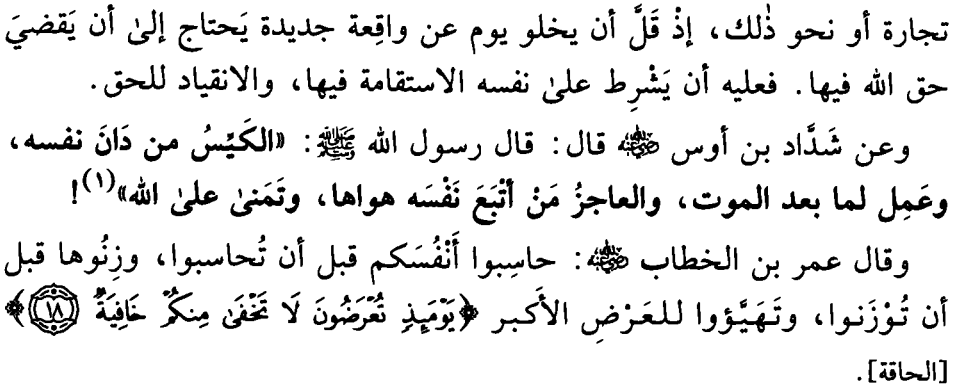 تجارة أو نحو ذٰلك، إذْ قَلَّ أن يخلو يوم عن واقِعة جديدة يَحتاج إلىٰ أن يَقضيَ
حق الله فيها. فعليه أن يَشْرِط علىٰ نفسه الاستقامة فيها، والانقياد للحق.
وعن شَدَّاد بن أوس رضي الله عنه قال: قال رسول الله ﷺ: «الكَيِّسُ من دَانَ نفسه،
وعَمِل لما بعد الموت، والعاجزُ مَنْ أتْبَعَ نَفْسَه هواها، وتَمَنىٰ علىٰ الله»(١)!
وقال عمر بن الخطاب رضي الله عنه: حاسِبوا أَنْفُسَكم قبل أن تُحاسبوا، وزِنُوها قبل
أن تُوْزَنوا، وتَهَيَّؤوا للعَرْضِ الأَكبر ﴿يَوْمَئِذٍ تُعْرَضُونَ لَا تَخْفَىٰ مِنكُمْ خَافِيَةٌ ١٨﴾
[الحاقة].